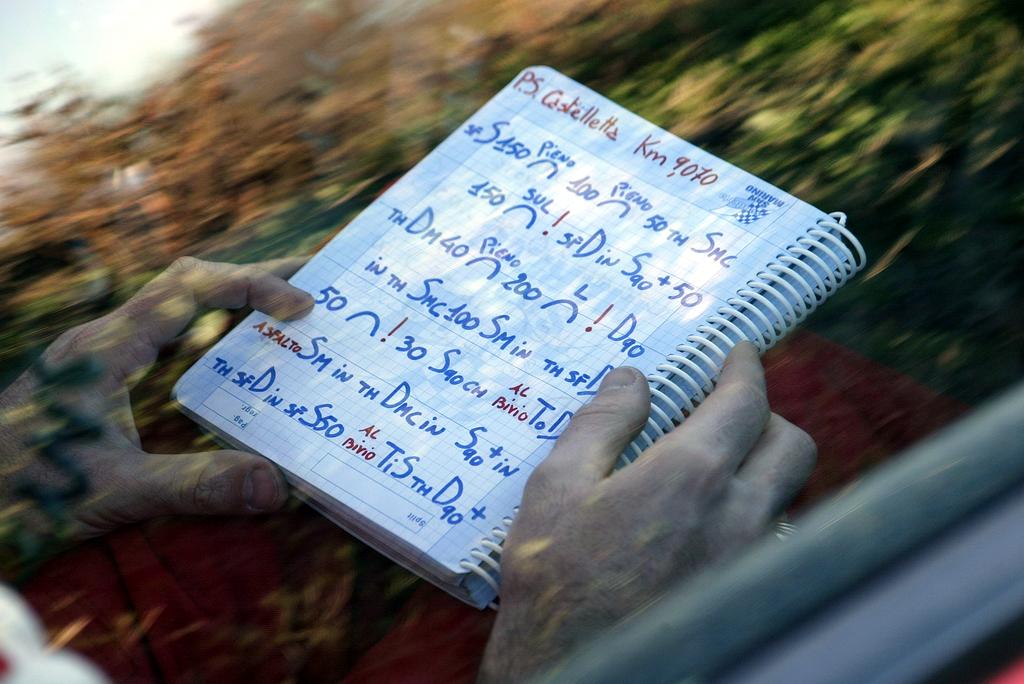 P.S. Castelletto Km 9070
MARINO
SF S 150 PIENO 100 PIENO 50 TH SMC
150 SUL ! SF D IN S90 + 50
TH DM 40 PIENO 200 L ! D90
IN TH SMC 100 SM IN TH SF D
50 ! 30 S90CH AL BIVIO T D
ASFALTO SM IN TH DMC IN S90 + IN
TH SF D IN SF S50 AL BIVIO T S TH D90 +
Pag. Split